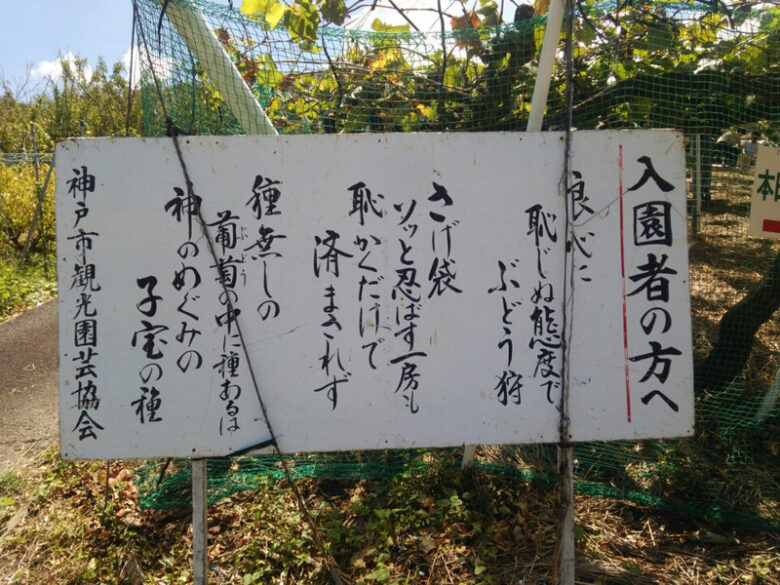 入園者の方へ
良心に
恥じぬ態度で
ぶどう狩
さげ袋
ソッと忍ばす一房も
恥かくだけで
済まされず
種無しの
葡萄の中に種あるは
ぶどう
神のめぐみの
子宝の種
神戸市観光園芸協会
本